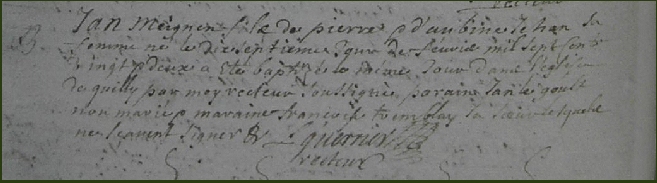 B. Jan Meignen fils de pierre & d'aubine Jehan sa
femme né le dixseptieme jour de feuvrier mil sept cents
vingt & deux a été baptisé le méme jour dans l'église
de quilly par moy recteur soussigné, paraine Jan le goust
non marié & maraine francoise tremblay sa sœur lesquels
ne sçavent signer &
recteur